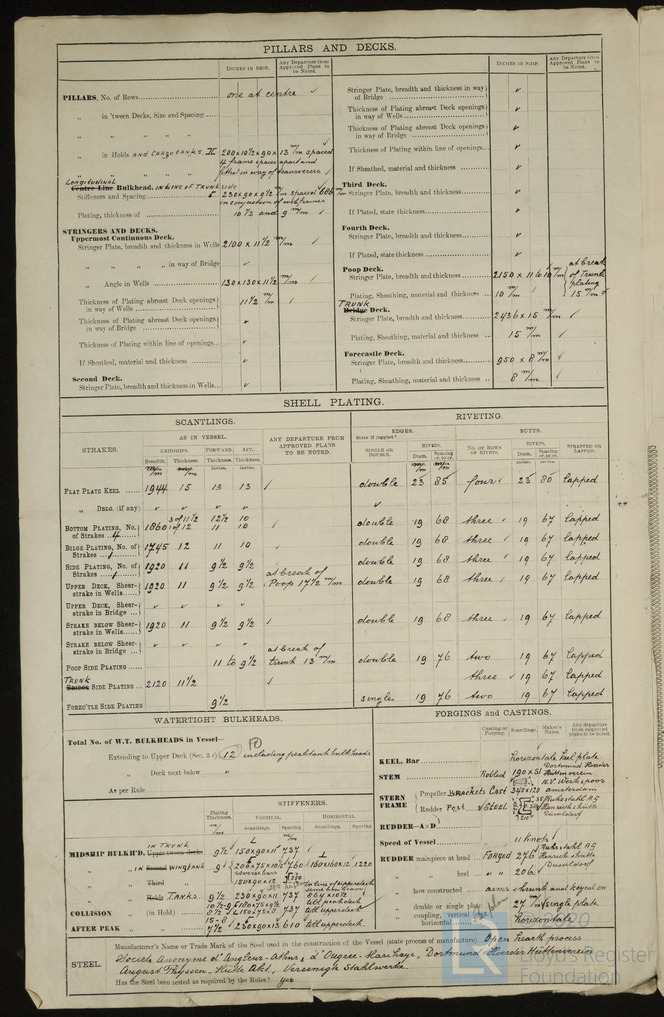 PILLARS AND DECKS.
INCHES IN SHIP.
Any Departure from Approved Plans to be Noted.
PILLARS, No. of Rows one at centre ✓
„ in 'tween Decks, Size and Spacing
„ „ „ „
„ in Holds AND CARGO TANKS 200×10½×90×13 m/m spaced
„ „ „ 4 frame spaces apart and
fitted in way of transverses
Longitudinal
Centre Line Bulkhead. IN LINE OF TRUNK SIDE
Stiffeners and Spacing 230×90×9½ m/m spaced 686 m/m
in conjunction of web frames
Plating, thickness of 10½ and 9 m/m
STRINGERS AND DECKS.
Uppermost Continuous Deck.
Stringer Plate, breadth and thickness in Wells 2100 × 11½ m/m
„ „ „ „ in way of Bridge ✓
„ Angle in Wells 130×130×11½ m/m
Thickness of Plating abreast Deck openings in way of Wells 11½ m/m
Thickness of Plating abreast Deck openings in way of Bridge ✓
Thickness of Plating within line of openings ✓
If Sheathed, material and thickness ✓
Second Deck.
Stringer Plate, breadth and thickness in Wells ✓
INCHES IN SHIP.
Any Departure from Approved Plans to be Noted.
Stringer Plate, breadth and thickness in way of Bridge ✓
Thickness of Plating abreast Deck openings in way of Wells ✓
Thickness of Plating abreast Deck openings in way of Bridge ✓
Thickness of Plating within line of openings ✓
If Sheathed, material and thickness ✓
Third Deck.
Stringer Plate, breadth and thickness ✓
If Plated, state thickness ✓
Fourth Deck.
Stringer Plate, breadth and thickness ✓
If Plated, state thickness ✓
Poop Deck.
Stringer Plate, breadth and thickness 2150 × 11 to 10 m/m at break of Trunk plating 15 m/m
Plating, Sheathing, material and thickness 10 m/m
TRUNK
Bridge Deck.
Stringer Plate, breadth and thickness 2436 × 15 m/m
Plating, Sheathing, material and thickness 15 m/m
Forecastle Deck.
Stringer Plate, breadth and thickness 950 × 8 m/m
Plating, Sheathing, material and thickness 8 m/m
SHELL PLATING.
SCANTLINGS.
RIVETING.
STRAKES.
AS IN VESSEL.
AMIDSHIPS. FORWARD. AFT.
Breadth. Thickness. Thickness. Thickness.
m/m m/m Inches. Inches.
ANY DEPARTURE FROM APPROVED PLANS TO BE NOTED.
EDGES.
State if joggled?
SINGLE OR DOUBLE.
RIVETS.
Diam. Spacing cr. to cr.
BUTTS.
No. OF ROWS OF RIVETS.
RIVETS.
Diam. Spacing cr. to cr.
STRAPPED OR LAPPED.
FLAT PLATE KEEL 1944 15 13 13 double 23 85 four 23 80 lapped
„ DBLG. (if any) ✓
BOTTOM PLATING, No. of Strakes 4 1860 3 of 11½ 1 of 12 12½ 11 10 10 double 19 68 three 19 67 lapped
BILGE PLATING, No. of Strakes 1 1745 12 11 10 double 19 68 three 19 67 lapped
SIDE PLATING, No. of Strakes 1 1920 11 9½ 9½ double 19 68 three 19 67 lapped
UPPER DECK, Sheerstrake in Wells 1920 11 9½ 9½ at break of Poop 17½ m/m double 19 68 three 19 67 lapped
UPPER DECK, Sheerstrake in Bridge ✓ ✓ ✓ ✓
STRAKE BELOW Sheerstrake in Wells 1920 11 9½ 9½ double 19 68 three 19 67 lapped
STRAKE BELOW Sheerstrake in Bridge ✓ ✓ ✓ ✓
POOP SIDE PLATING 11 to 9½ at break of trunk 13 m/m double 19 76 two 19 67 lapped
TRUNK
Bridge SIDE PLATING 2120 11½ three 19 67 lapped
FORECTLE SIDE PLATING 9½ single 19 76 two 19 67 lapped
WATERTIGHT BULKHEADS.
Total No. of W.T. BULKHEADS in Vessel—
Extending to Upper Deck (Sec. 3 c) 12 including peaktank bulkheads
„ Deck next below ✓
As per Rule
STIFFENERS.
Plating Thickness.
VERTICAL. HORIZONTAL.
Scantlings. Spacing. Scantlings. Spacing.
MIDSHIP BULKH'D, IN TRUNK 9½ 150×90×11 737
„ „ IN WINGTANK 9½ 200×75×10½ 760 160×160×12 1220
reversebars
„ „ Third „ 150×90×12
„ „ Holds TANKS 9½ 230×90×11 737
COLLISION (in Hold) 8½ 150×75×8 737 till upperdeck
AFTER PEAK „ 7½ 230×90×13 610 till upperdeck
FORGINGS and CASTINGS.
Casting or Forging.
Scantlings.
Maker's Name.
Any departure from approved plans to be noted.
KEEL, Bar horizontale keel plate
STEM Rolled 190×51 Dortmund Hoerder Hüttenverein
STERN FRAME Propeller Brackets Cast 340×120 N.V. Werkspoor Amsterdam
Rudder Post Steel Ruhrstahl AG Henrichshütte
RUDDER—A×D ✓
Speed of Vessel 11 Knots
RUDDER mainpiece at head Forged 276 Ruhrstahl AG Henrichshütte
„ „ heel „ 206
„ how constructed arms shrunk and keyed on
„ double or single plate 27 m/m single plate
„ coupling, vertical or horizontal horizontale
STEEL.
Manufacturer's Name or Trade Mark of the Steel used in the construction of the Vessel (state process of manufacture) Open hearth process
Société Anonyme d'Angleur-Athus, d'Ougrée-Marihaye, Dortmund-Hoerder Hüttenverein
August Thyssen-Hütte Akt., Vereenigte Stahlwerke
Has the Steel been tested as required by the Rules? yes
© 2020
LR
Lloyd's Register
Foundation